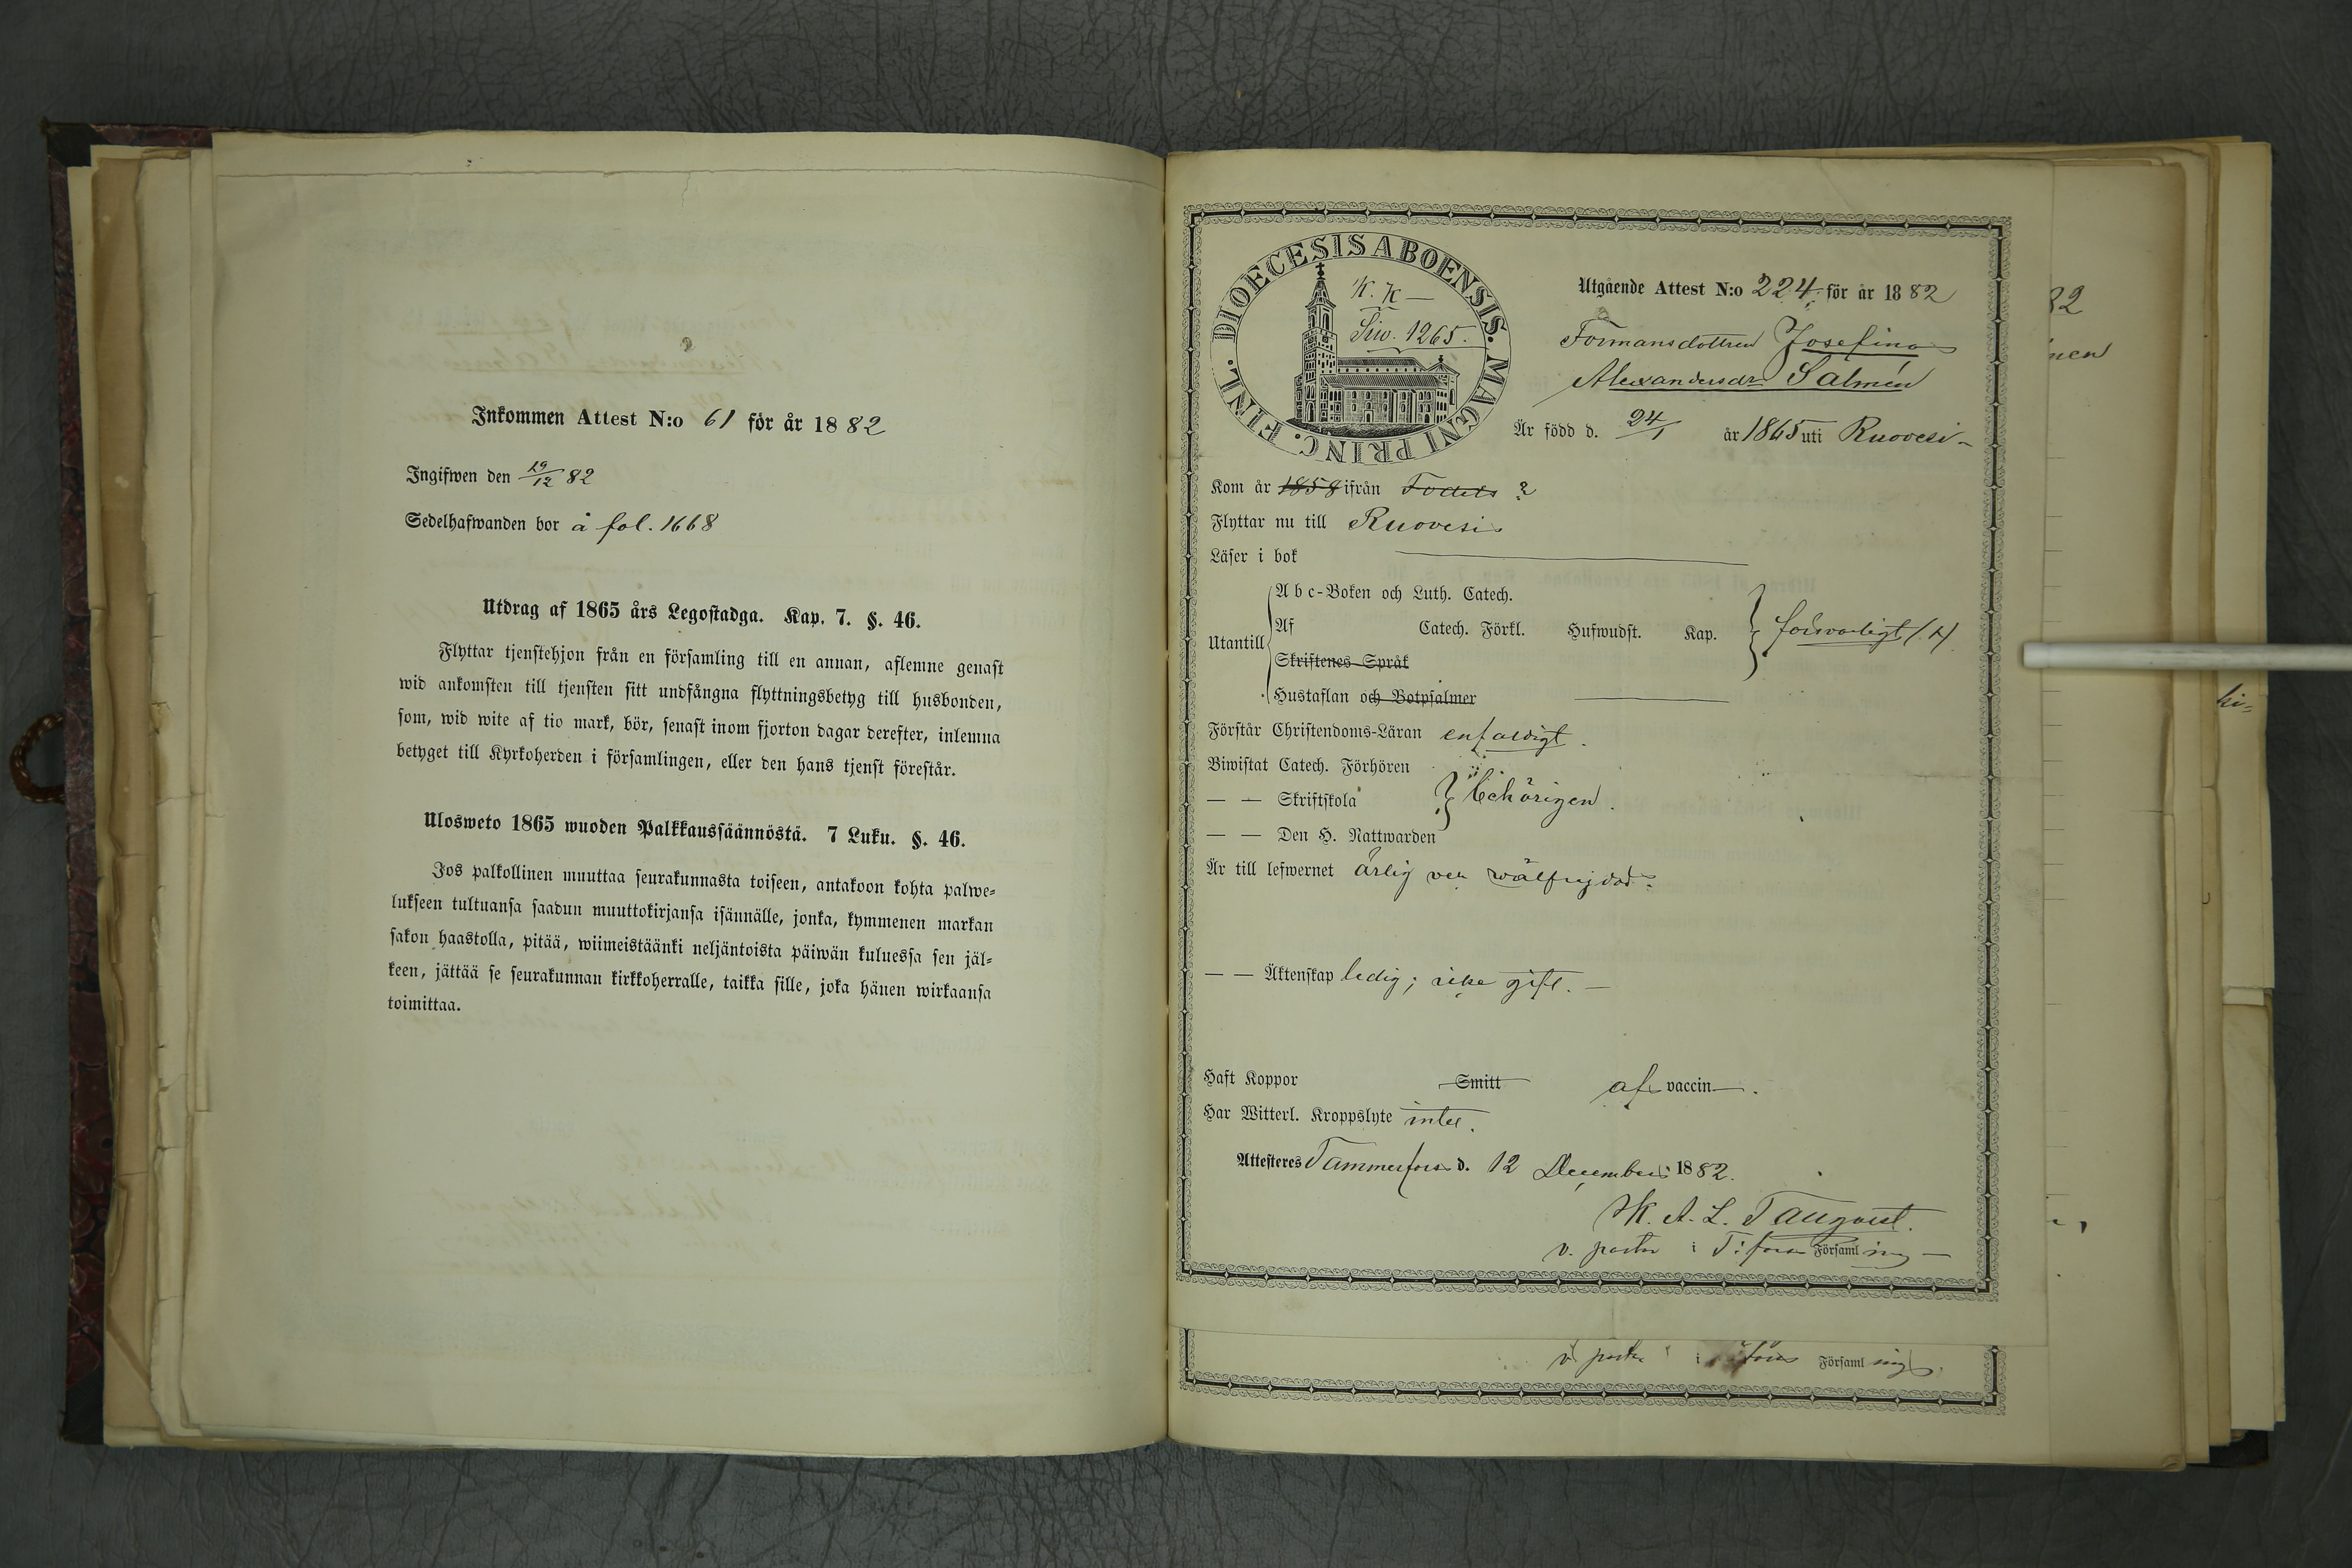 Inkommen Attest N:o 61 för år 1882
Ingifwen den 19/12 82
Sedelhafwanden bor å fol. 1668
Utdrag af 1865 års Legostadga. Kap. 7. §. 46.
Flyttar tjenstehjon från en församling till en annan, aflemne genast
wid ankomsten till tjensten sitt undfångna flyttningsbetyg till husbonden,
som, wid wite af tio mark, bör, senast inom fjorton dagar derefter, inlemna
betyget till Kyrkoherden i församlingen, eller den hans tjenst förestår.
Ulosweto 1865 wuoden Palkkaussäännöstä. 7 Luku. §. 46.
Jos palkollinen muuttaa seurakunnasta toiseen, antakoon kohta palwe-
lukseen tultuansa saadun muuttokirjansa isännälle, jonka, kymmenen markan
sakon haastolla, pitää, wiimeistäänki neljäntoista päiwän kuluessa sen jäl-
keen, jättää se seurakunnan kirkkoherralle, taikka sille, joka hänen wirkaansa
toimittaa.
DIOECESIS ABOENSIS. MAGNI PRINC. FINL.
K. K —
Siw. 1265.
Utgående Attest N:o 224 för år 1882
Formansdottren Josefina
Alexandersdr Salmén
Är född d. 24/1 år 1865 uti Ruovesi –
Kom år 1858 ifrån Födels ?
Flyttar nu till Ruovesi
Läser i bok
Utantill
Abc-Boken och Luth. Catech.
Af Catech. Förkl. Hufwudst. Kap.
Skriftenes Språk
Hustaflan och Botpsalmer
försvarligt
Förstår Christendoms-Läran enfaldigt.
Biwistat Catech. Förhören
— — Skriftskola
— — Den H. Nattwarden
behörigen.
Är till lefwernet ärlig och wälfrejdad.
— — Äktenskap ledig; icke gift. —
Haft Koppor Smitt af vaccin.
Har Witterl. Kroppslyte intet.
Attesteres Tammerfors d. 12 December 1882.
K. A. L. Tallqvist.
v. pastor i T:fors Församling —
v. pastor i T:fors Församling.
82
nen